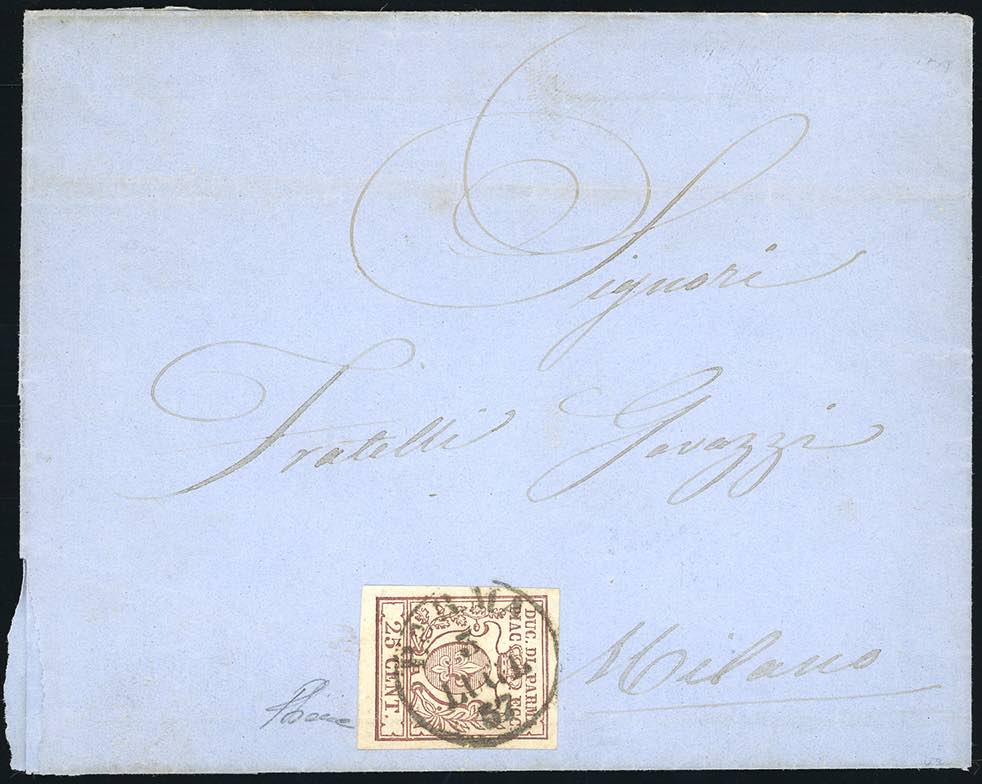 Signori
Fratelli Gavazzi
Milano
DUC. DI PARM
PIAC. ECC.
25 CENT.
PARMA
5
LUGL
57